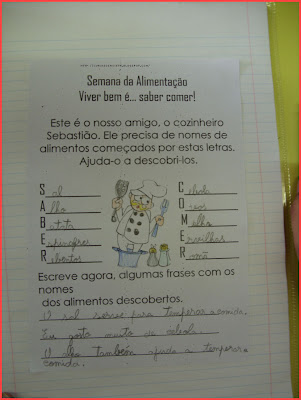 Semana da Alimentação
Viver bem é... saber comer!
Este é o nosso amigo, o cozinheiro
Sebastião. Ele precisa de nomes de
alimentos começados por estas letras.
Ajuda-o a descobri-los.
S al
A lho
B atata
E spinafres
R
C ebola
O vos
M elho
E rvilhas
R omã
Escreve agora, algumas frases com os
nomes
dos alimentos descobertos.
O sal serve para temperar a comida.
Eu gosto muito de cebola.
O alho também ajuda a temperar a
comida.